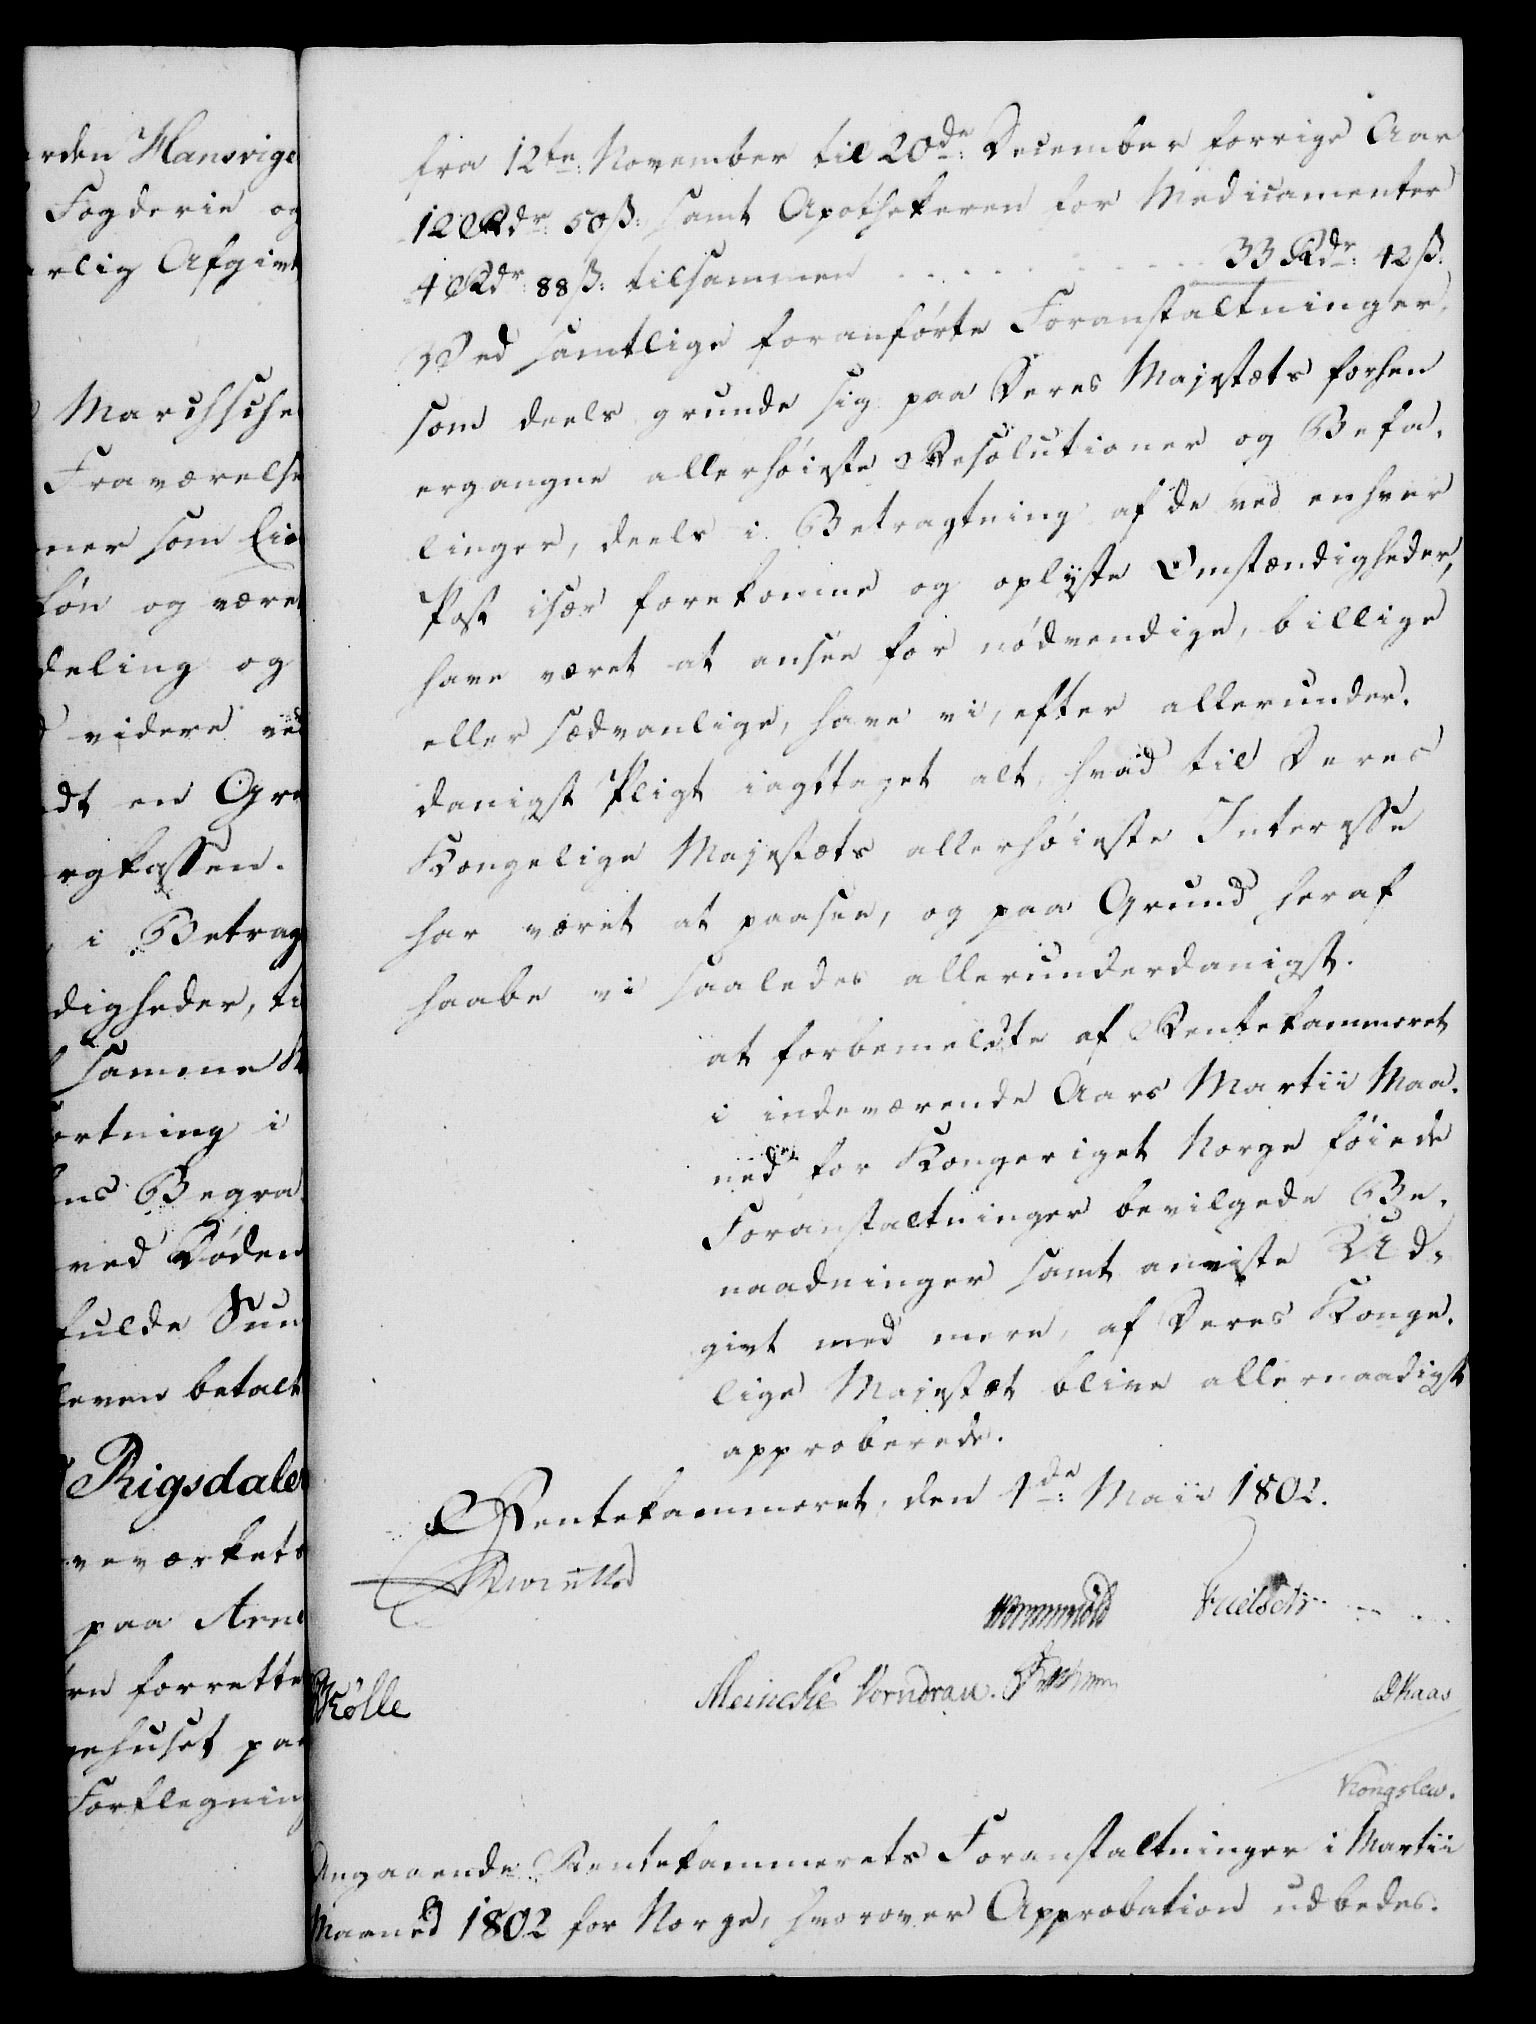 rden Hansvige
Fogderie og
rlig Afgivt
Marchsche
Fraværelse
ner som Ein
løn og være
deling og
videre ved
dt en Gra
rgkassen.
i Betrag
digheder, ti
samme
ortning i
ens Begra
ved Døden
fulde Sum
leven betalt
Rigsdaler
veværkets
paa Arne
en forrette
gehuset paa
Forflegning
fra 12te November til 20de December forrige Aar
12 Rdr. 50 ß. samt Apothekeren for Medicamenter
4 Rdr. 88 ß. tilsammen . . . . . . 33 Rdr. 42 ß.
Ved samtlige foranførte Foranstaltninger,
som deels grunde sig paa Deres Majestæts forhen
ergangne allerhøieste Resolutioner og Befa-
linger, deels i Betragtning af de ved enhver
Post især forekomne og oplyste Omstændigheder,
have været at ansee for nødvendige, billige
eller sædvanlige, have vi, efter allerunder-
danigst Pligt iagttaget alt, hvad til Deres
Kongelige Majestæts allerhøieste Interesse
har været at paasee, og paa Grund heraf
haabe vi saaledes allerunderdanigst.
at forbemeldte af Rentekammeret
i indeværende Aars Martii Maa-
ned for Kongeriget Norge føiede
Foranstaltninger bevilgede Be-
naadninger samt anviste Ud-
givt med mere, af Deres Konge-
lige Majestæt blive allernaadigst
approberede.
Rentekammeret, den 1de Maii 1802.
Reventlow
Wormskiold Fuelsch
Kølle Meinche Vorndran. OKaas
Kongslew.
Angaaende Rentekammerets Foranstaltninger i Martii
Maaned 1802 for Norge, hvorover Approbation udbedes.